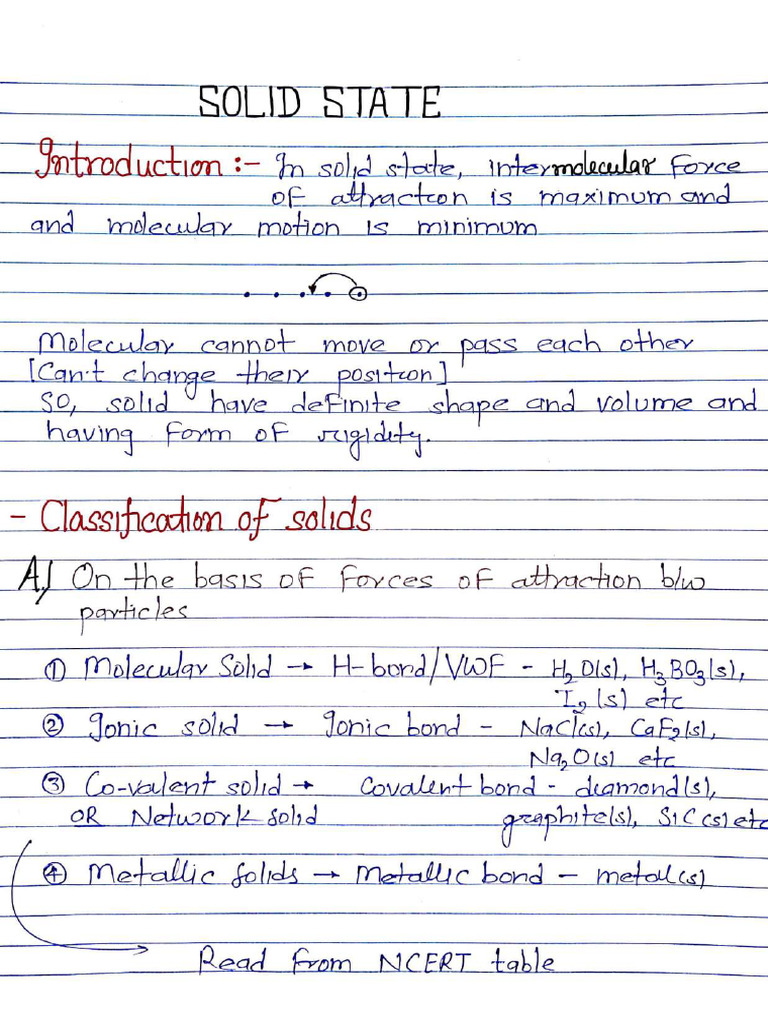 SOLID STATE
Introduction :- In solid state, intermolecular Force
of attraction is maximum and
and molecular motion is minimum
Molecular cannot move or pass each other
[Can't change their position]
So, solid have definite shape and volume and
having form of rigidity.
- Classification of solids
A.) On the basis of forces of attraction b/w
particles
① Molecular Solid → H-bond/VWF - H₂O(s), H₃BO₃(s),
I₂(s) etc
② Ionic solid → Ionic bond - NaCl(s), CaF₂(s),
Na₂O(s) etc
③ Co-valent solid → Covalent bond - diamond(s),
OR Network solid graphite(s), SiC(s) etc
④ Metallic solids → Metallic bond - metal(s)
Read from NCERT table